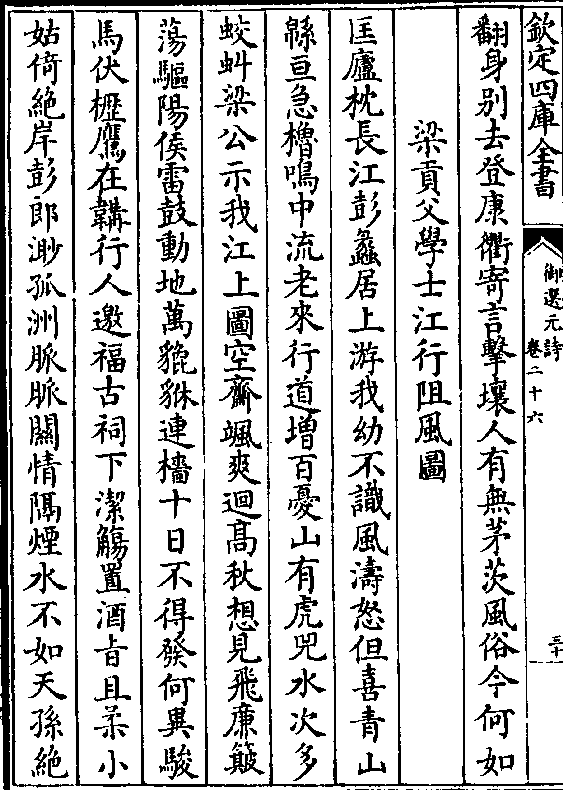 欽定四庫全書
御選元詩
卷二十六
三十
翻身别去登康衢寄言擊壤人有無茅茨風俗今何如
梁貢父學士江行阻風圖
匡廬枕長江彭蠡居上游我幼不識風濤怒但喜青山
緜亘急櫓鳴中流老來行道增百憂山有虎兕水次多
蛟虯梁公示我江上圖空齋颯爽迴髙秋想見飛廉簸
蕩驅陽侯雷鼓動地萬貔貅連檣十日不得發何異駿
馬伏櫪鷹在韝行人邀福古祠下潔觴置酒㫖且柔小
姑倚絶岸彭郎渺孤洲脈脈關情隔煙水不如天孫絶